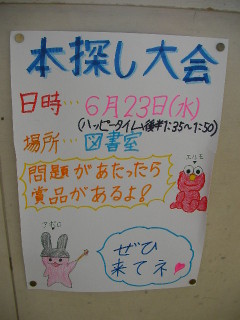 本探し大会
日時… 6月23日(水)
(ハッピータイム後半1:35～1:50)
場所… 図書室
問題があたったら
賞品があるよ!
エルモ
ぜひ
来てネ